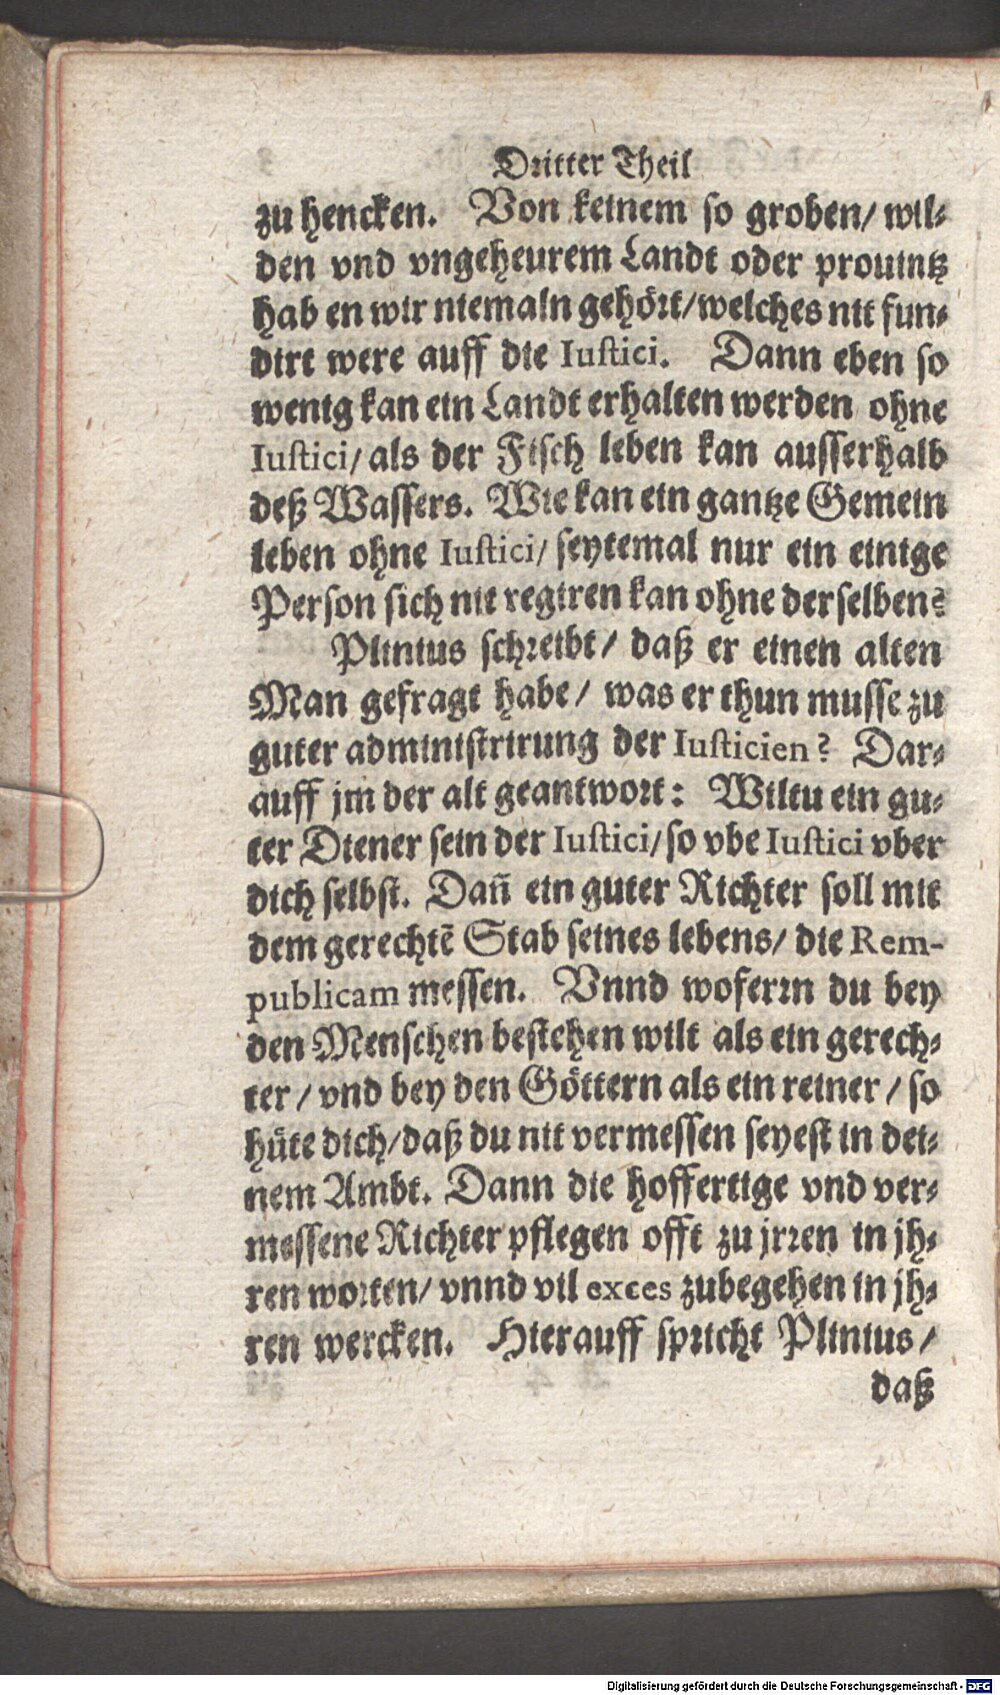 Dritter Theil
zu hencken. Von keinem so groben/ wil-
den vnd vngeheurem Landt oder prouintz
hab en wir niemaln gehört/welches nit fun-
dirt were auff die Iustici. Dann eben so
wenig kan ein Landt erhalten werden ohne
Iustici/ als der Fisch leben kan ausserhalb
deß Wassers. Wie kan ein gantze Gemein
leben ohne Iustici/ seytemal nur ein einige
Person sich nit regiren kan ohne derselben?
Plinius schreibt/ daß er einen alten
Man gefragt habe/ was er thun musse zu
guter administrirung der Iusticien? Dar-
auff jm der alt geantwort: Wiltu ein gu-
ter Diener sein der Iustici/so vbe Iustici vber
dich selbst. Dañ ein guter Richter soll mit
dem gerechtẽ Stab seines lebens/ die Rem-
publicam messen. Vnnd woferrn du bey
den Menschen bestehen wilt als ein gerech-
ter/ vnd bey den Göttern als ein reiner/ so
hüte dich/daß du nit vermessen seyest in dei-
nem Ambt. Dann die hoffertige vnd ver-
messene Richter pflegen offt zu jrren in jh-
ren worten/ vnnd vil exces zubegehen in jh-
ren wercken. Hierauff spricht Plinius/
daß
Digitalisierung gefördert durch die Deutsche Forschungsgemeinschaft - DFG